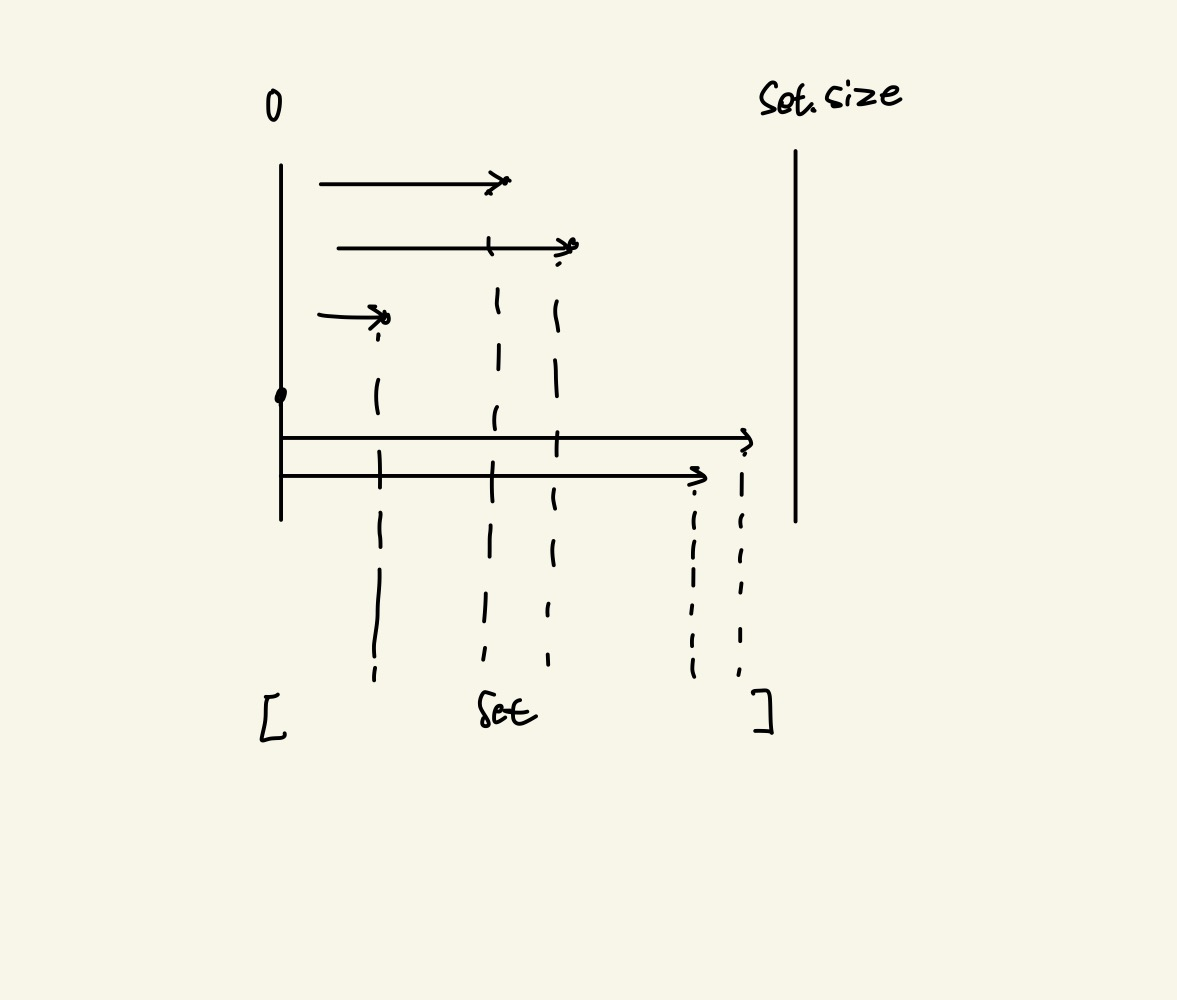 0 Set.size
[ Set ]